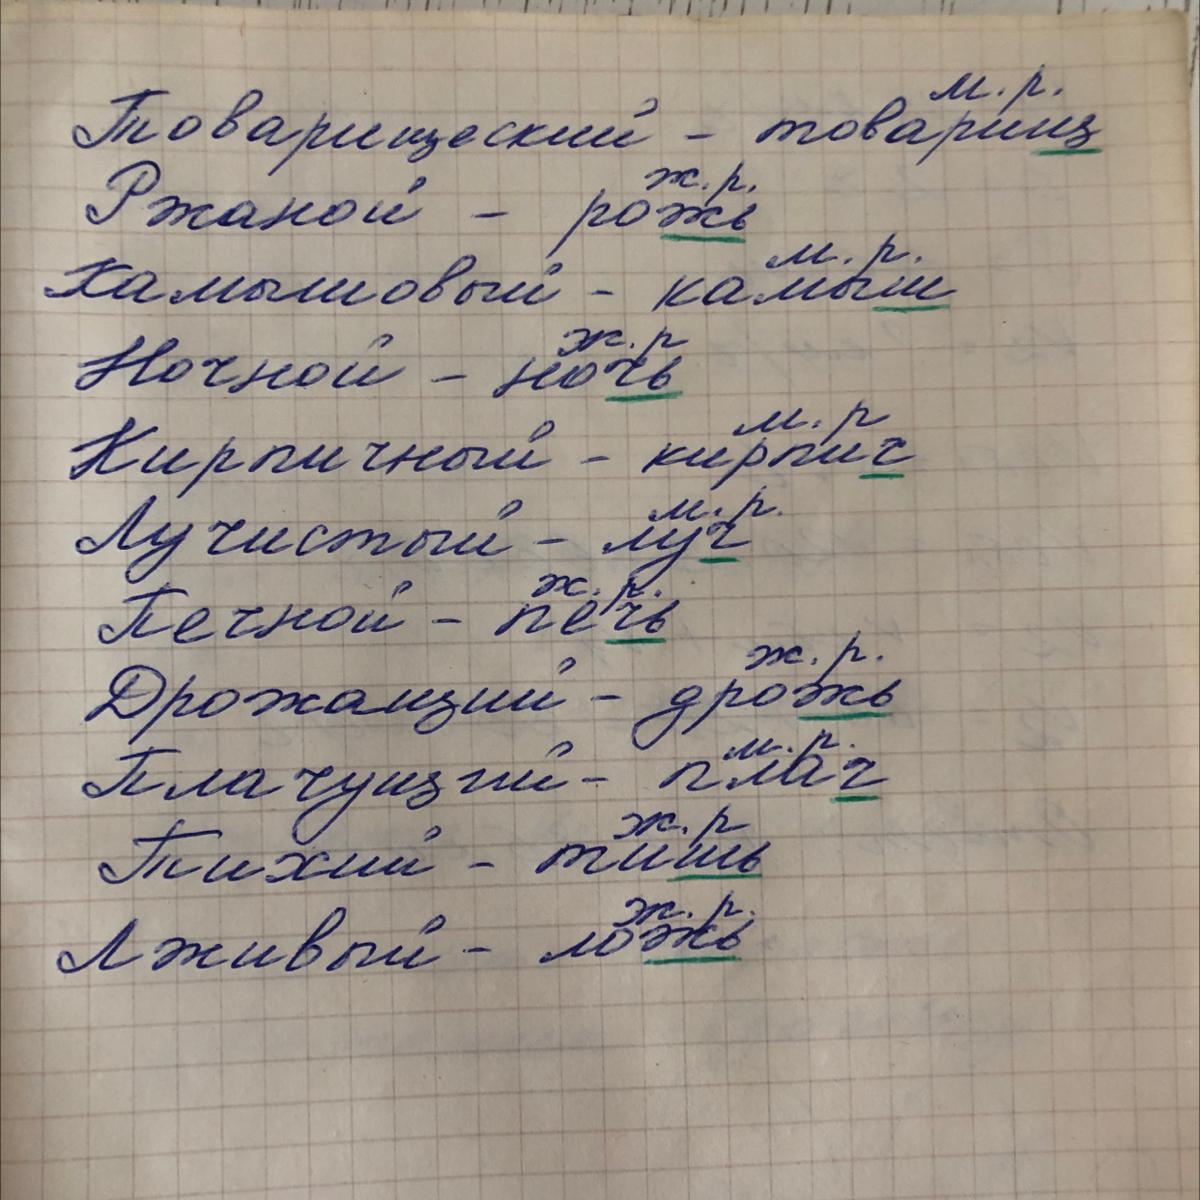 м. р.
Товарищеский - товарищ
ж. р.
Ржаной - рожь
м. р.
Камышовый - камыш
ж. р
Ночной - ночь
м. р
Кирпичный - кирпич
м. р.
Лучистый - луч
ж. р.
Печной - печь
ж. р.
Дрожащий - дрожь
м. р.
Плачущий - плач
ж. р
Тихий - тишь
ж. р.
Лживый - ложь